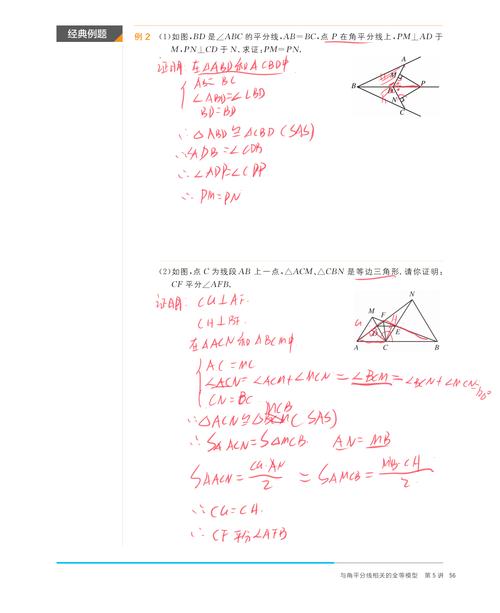 经典例题
例 2 (1)如图,BD 是∠ABC 的平分线,AB=BC,点 P 在角平分线上,PM⊥AD 于
M,PN⊥CD 于 N.求证:PM=PN.
证明: 在△ABD和△CBD中
AB= BC
∠ABD=∠CBD
BD=BD
∴△ABD≌△CBD (SAS)
∴∠ADB=∠CDB
∴∠ADP=∠CDP
∴PM=PN
A
M
B
D
P
N
C
(2)如图,点 C 为线段 AB 上一点,△ACM、△CBN 是等边三角形.请你证明:
CF 平分∠AFB.
证明: CG⊥AF.
CH⊥BF.
在△ACN和△BCM中
AC=MC
∠ACN=∠ACM+∠MCN=∠BCM=∠BCN+∠MCN
CN=BC
∴△ACN≌△MCB (SAS)
∴S△ACN=S△MCB. AN=MB
S△ACN=CG·AN/2=S△MCB=MB·CH/2
∴CG=CH.
∴CF平分∠AFB
N
M
F
H
G
D
E
A
C
B
与角平分线相关的全等模型 第 5 讲 56